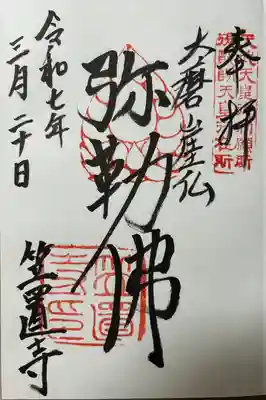 奉拝
大磨崖仏
弥勒佛
令和七年
三月二十日
笠置寺